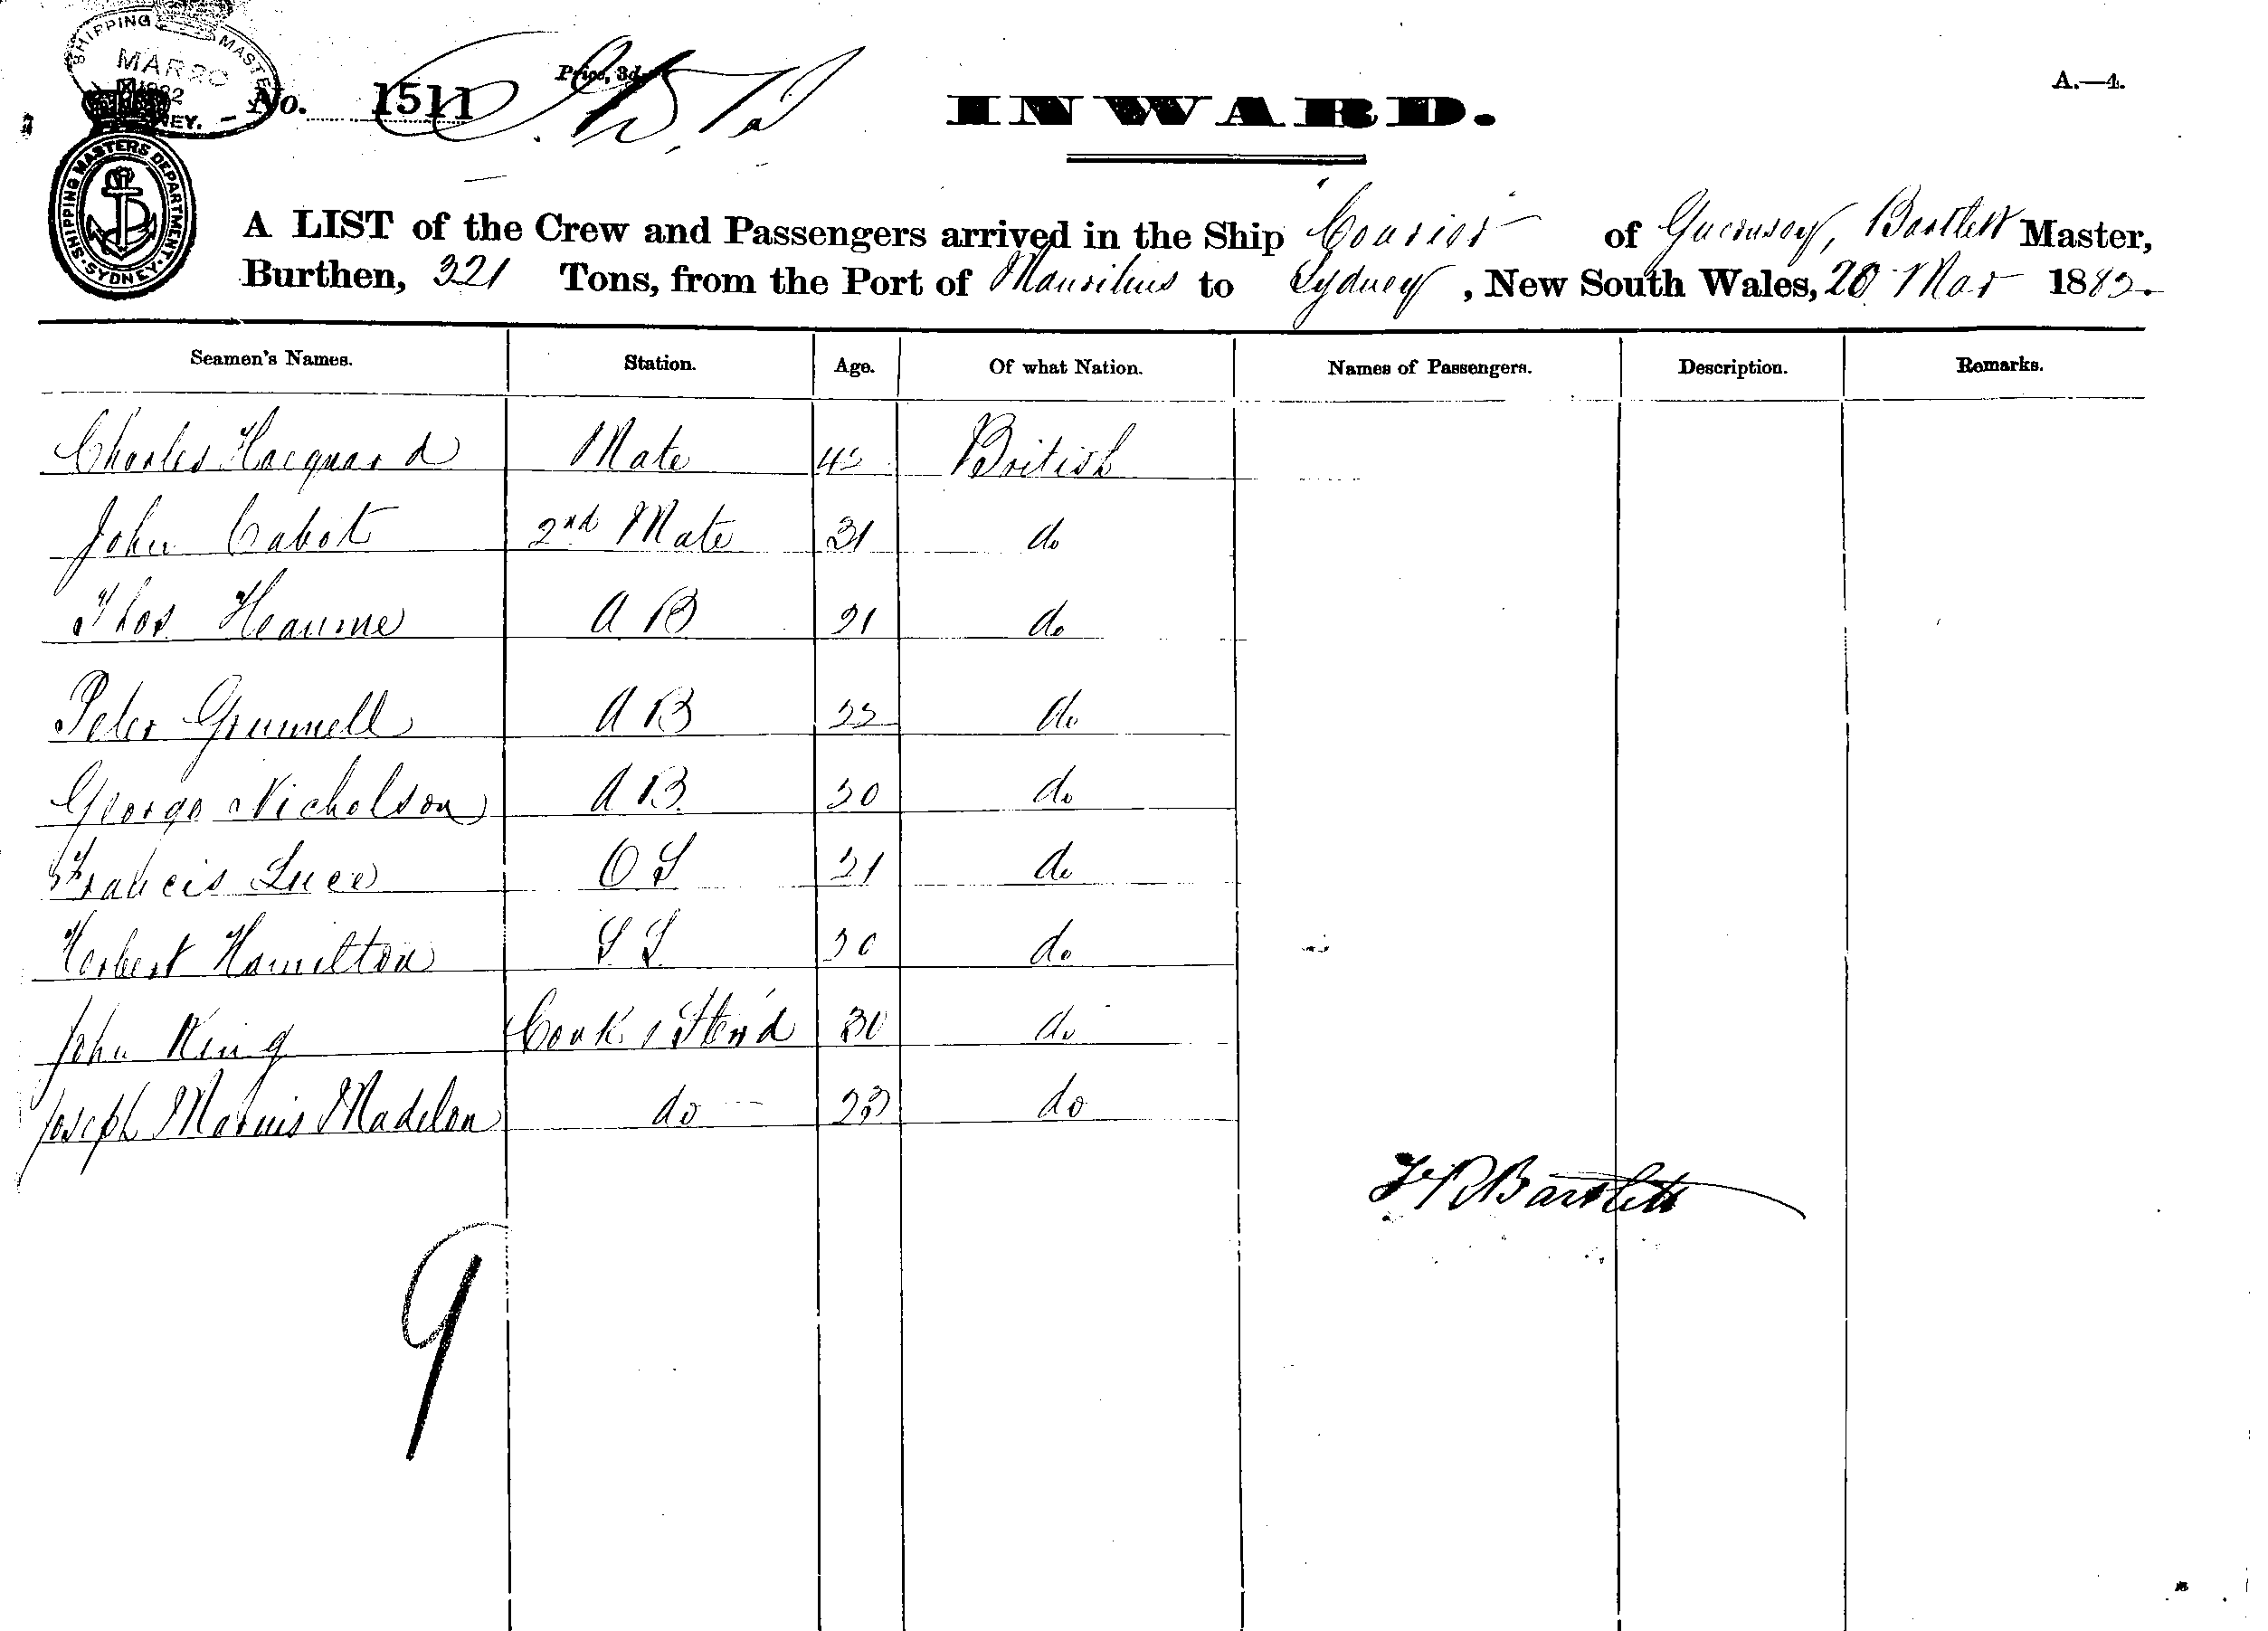 SHIPPING MASTER
MAR 20
1882
SYDNEY.
No. 1511
Price, 3d.
INWARD.
A.—4.
SHIPPING MASTERS DEPARTMENT · SYDNEY ·
A LIST of the Crew and Passengers arrived in the Ship Courier of Guernsey, Bartlett Master,
Burthen, 321 Tons, from the Port of Mauritius to Sydney, New South Wales, 20 Mar 1882.
Seamen's Names. Station. Age. Of what Nation. Names of Passengers. Description. Remarks.
Charles Hacquard Mate British
John Cabot 2nd Mate 31 do
Thos Heaume A B 21 do
Peter Grummell A B 22 do
George Nicholson A B 30 do
Francis Luce O S 21 do
Herbert Hamilton 20 do
John King Cook & Stew'd 30 do
Joseph Madelon do 23 do
F P Bartlett
9